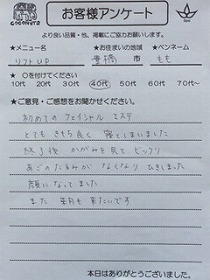 お客様アンケート
より良い品質・ご提供の為、掲載にご協力お願いします。
★メニュー名 ★お住まいの地域 ★ペンネーム
リフトUP 豊橋 市 もも
★○を付けてください
10代 20代 30代 40代 50代 60代 70代~
★ご意見・ご感想をお聞かせください。
初めての フェイシャル エステ
とても きもち良く 寝てしまいました
終了後 かがみを見て ビックリ
あごのたるみが なくなり ひきしまった
顔になってました
また 来月も 来たいです
本日はありがとうございました。